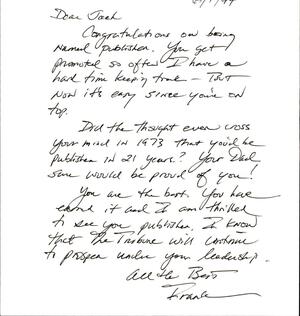 Dear Jack
Congratulations on being
named publisher. You get
promoted so often I have a
hard time keeping track - But
now it's easy since you're on
top.
Did the thought ever cross
your mind in 1973 that you'd be
publisher in 21 years? Your Dad
sure would be proud of you!
You are the best. You have
earned it and I am thrilled
to see you publisher. I know
that The Tribune will continue
to prosper under your leadership.
All the Best
Frank